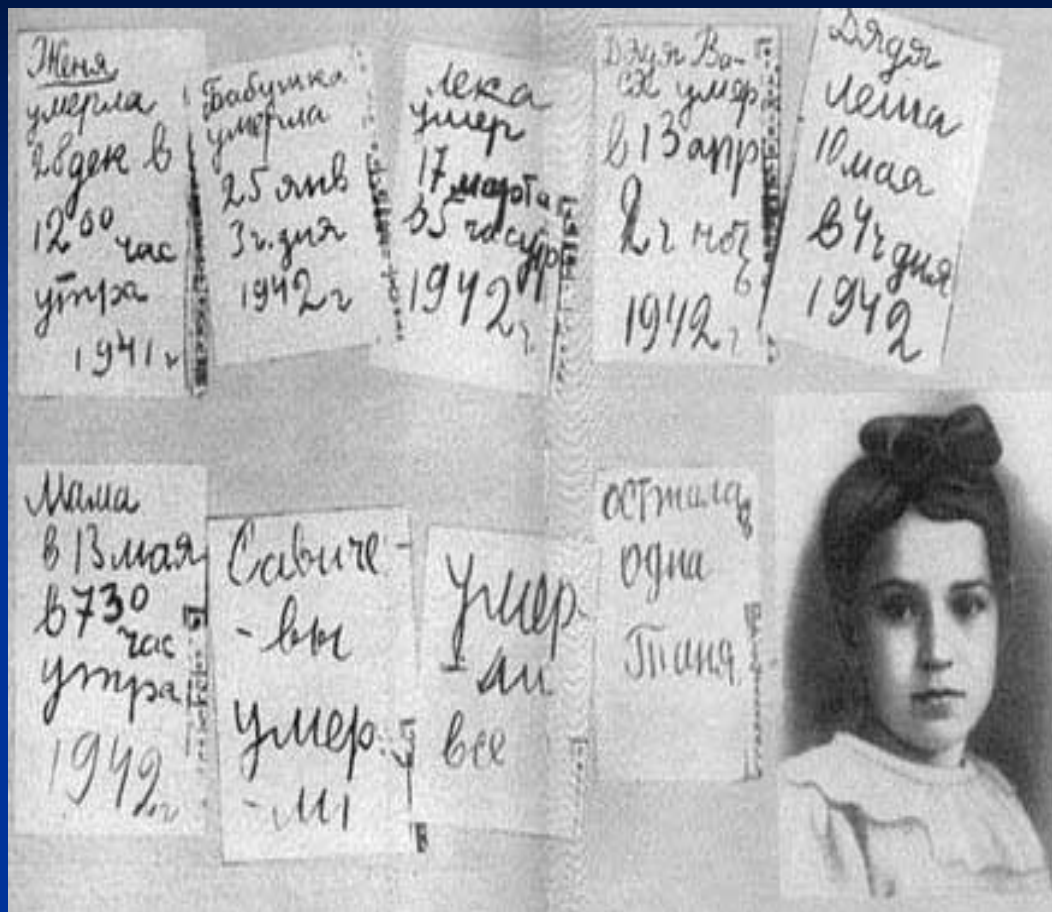 Женя
умерла
28 дек в
12 00 час
утра
1941 г
Бабушка
умерла
25 янв
3 ч. дня
1942 г
Лека
умер
17 марта
в 5 час утр
1942 г.
Дядя Ва-
ся умер
в 13 апр
2 ч ноч
1942 г
Дядя
Леша
10 мая
в 4 ч дня
1942
Мама
в 13 мая
в 7 30
час
утра
1942 г
Савиче-
-вы
умер-
-ли
Умер-
-ли
все
Осталась
одна
Таня